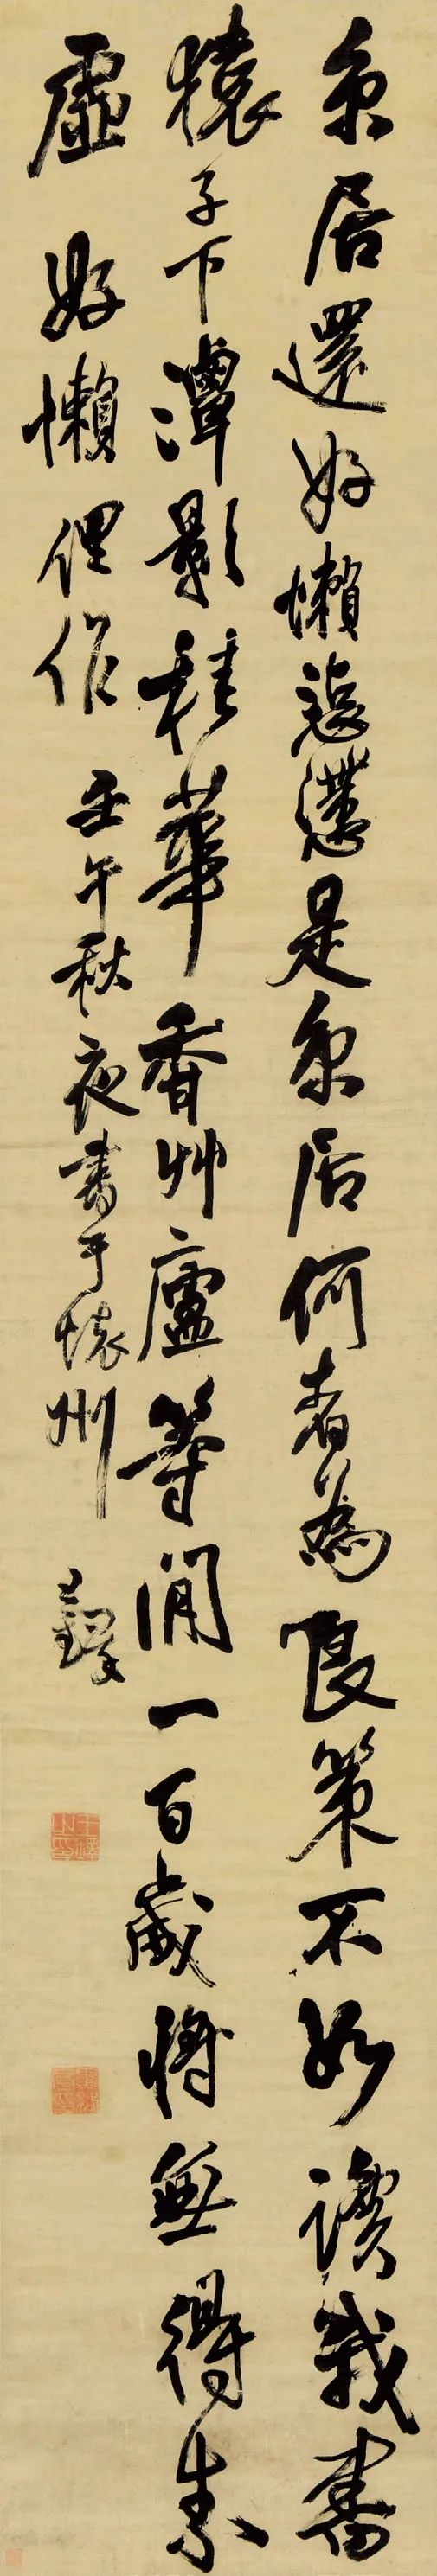 京居還好懶忘㦬是京居何者為良策不如讀我書
猿子下潭影桂華香艸廬等閒一百歲將無得朱
虛 好懶俚作 壬午秋夜書于懷州 王鐸
王鐸之印